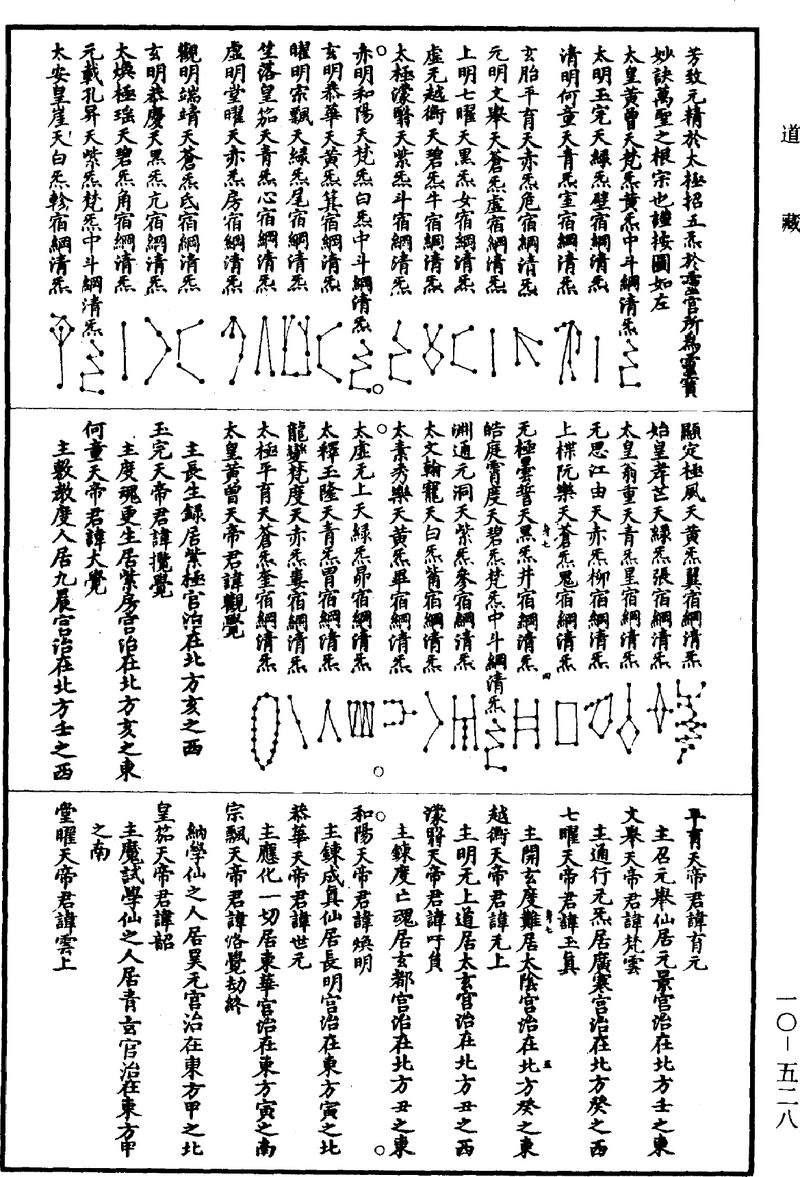 道藏
芳致元精於太極招五炁於璗宮所為靈寶
妙訣萬聖之根宗也謹按圖如左
太皇黃曾天梵炁黃炁中斗綱清炁
太明玉完天綠炁壁宿綱清炁
清明何童天青炁室宿綱清炁
玄胎平育天赤炁危宿綱清炁
元明文舉天蒼炁虛宿綱清炁
上明七曜天黑炁女宿綱清炁
虛无越衡天碧炁牛宿綱清炁
太極濛翳天紫炁斗宿綱清炁
赤明和陽天梵炁白炁中斗綱清炁
玄明恭華天黃炁箕宿綱清炁
曜明宗飄天綠炁尾宿綱清炁
竺落皇笳天青炁心宿綱清炁
虛明堂曜天赤炁房宿綱清炁
觀明端靖天蒼炁氐宿綱清炁
玄明恭慶天黑炁亢宿綱清炁
太煥極瑤天碧炁角宿綱清炁
元載孔昇天紫炁梵炁中斗綱清炁
太安皇崖天白炁軫宿綱清炁
顯定極風天黃炁翼宿綱清炁
始皇孝芒天綠炁張宿綱清炁
太皇翁重天青炁星宿綱清炁
无思江由天赤炁柳宿綱清炁
上揲阮樂天蒼炁鬼宿綱清炁
无極曇誓天黑炁井宿綱清炁
皓庭霄度天碧炁梵炁中斗綱清炁
淵通元洞天紫炁參宿綱清炁
太文翰寵天白炁觜宿綱清炁
太素秀樂天黃炁畢宿綱清炁
太虛无上天綠炁昴宿綱清炁
太釋玉隆天青炁胃宿綱清炁
龍變梵度天赤炁婁宿綱清炁
太極平育天蒼炁奎宿綱清炁
太皇黃曾天帝君諱觀覺
主長生錄居紫極宮治在北方亥之西
玉完天帝君諱攬覺
主度魂更生居紫房宮治在北方亥之東
何童天帝君諱大覺
主敷教度人居九晨宮治在北方壬之西
平育天帝君諱育元
主召元舉仙居元景宮治在北方壬之東
文舉天帝君諱梵雲
主通行元炁居廣寒宮治在北方癸之西
七曜天帝君諱玉真
主開玄度難居太陰宮治在北方癸之東
越衡天帝君諱元上
主明无上道居太玄宮治在北方丑之西
濛翳天帝君諱吁員
主鍊度亡魂居玄都宮治在北方丑之東
和陽天帝君諱煥明
主鍊成真仙居長明宮治在東方寅之北
恭華天帝君諱世元
主應化一切居東華宮治在東方寅之南
宗飄天帝君諱恪覺劫終
納學仙之人居昊元宮治在東方甲之北
皇笳天帝君諱韶
主魔試學仙之人居青玄宮治在東方甲
之南
堂曜天帝君諱雲上
一〇－五二八